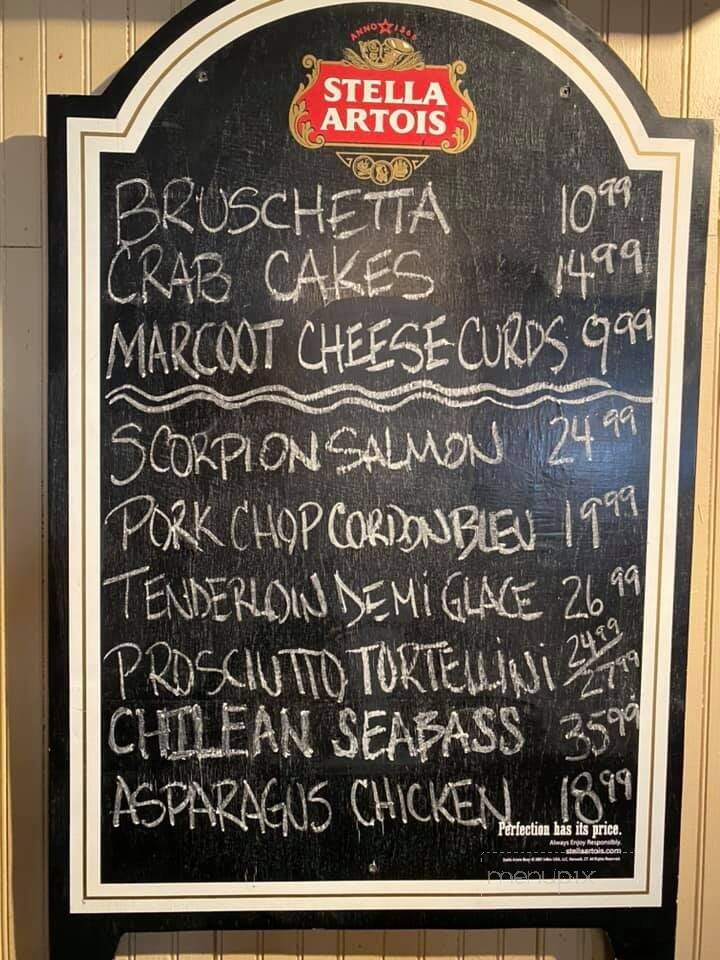 ANNO 1366
STELLA
ARTOIS
BRUSCHETTA 10.99
CRAB CAKES 14.99
MARCOOT CHEESE CURDS 9.99
SCORPION SALMON 24.99
PORK CHOP CORDON BLEU 19.99
TENDERLOIN DEMI GLACE 26.99
PROSCIUTTO TORTELLINI 24.99/27.99
CHILEAN SEABASS 35.99
ASPARAGUS CHICKEN 18.99
Perfection has its price.
Always Enjoy Responsibly.
stellaartois.com
menupix